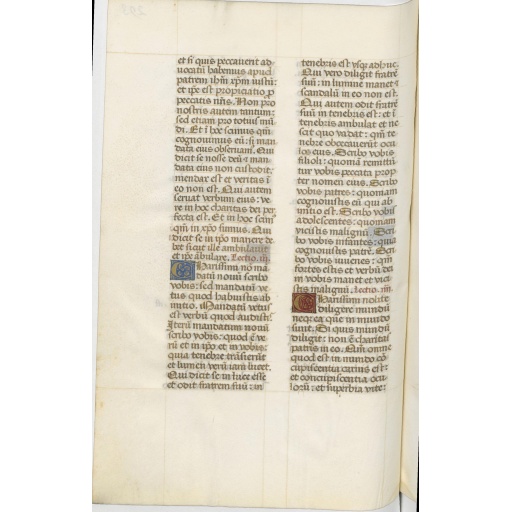 et si quis peccaverit ad-
vocatū habemus apud
patrem ihm xpm iustū:
et ipe est propiciatio p
peccatis nris. Non pro
nostris autem tantum:
sed etiam pro totius mū
di. Et ī hoc scimus qm
cognovimus eū: si man
data eius observam. Qui
dicit se nosse deū et man
data eius non custodit:
mendax est et veritas ī
eo non est. Qui autem
servat verbum eius: ve
re in hoc charitas dei per
fecta est. Et in hoc scim
qm in ipo sumus. Qui
dicit se in ipo manere de
bet sicut ille ambulavit
et ipe ābulare. Lectio. iij.
Charissimi nō mā
datū novū scribo
vobis: sed mandatū ve
tus quod habuistis ab
initio. Mandatū vetus
est verbū quod audistis.
Iterū mandatum novū
scribo vobis: quod ē ve
rū et in ipo et in vobis:
quia tenebre trāsierūt
et lumen verū iam lucet.
Qui dicit se in luce esse
et odit fratrem suū: in
tenebris est usqz adhuc.
Qui vero diligit fratrē
suū: in lumine manet et
scandalū in eo non est.
Qui autem odit fratrē
suū in tenebris est: et ī
tenebris ambulat et ne
scit quo vadat: qm te
nebre obcecaverūt ocu
los eius. Scribo vobis
filioli: quoniā remittū
tur vobis peccata prop
ter nomen eius. Scribo
vobis patres: quoniam
cognovistis eū qui ab
initio est. Scribo vobis
adolescentes: quoniam
vicistis malignū. Scri
bo vobis infantes: quia
cognovistis patrē. Scri
bo vobis iuvenes: qm
fortes estis et verbū dei
in vobis manet et vici
stis malignū. Lectio. iiij.
Charissimi nolite
diligere mundū
neqz ea que in mundo
sunt. Si quis mūndū
diligit: non ē charitas
patris in eo. Qm omne
quod est in mundo cō
cupiscentia carnis est:
et concupiscentia ocu
lorū: et superbia vite: